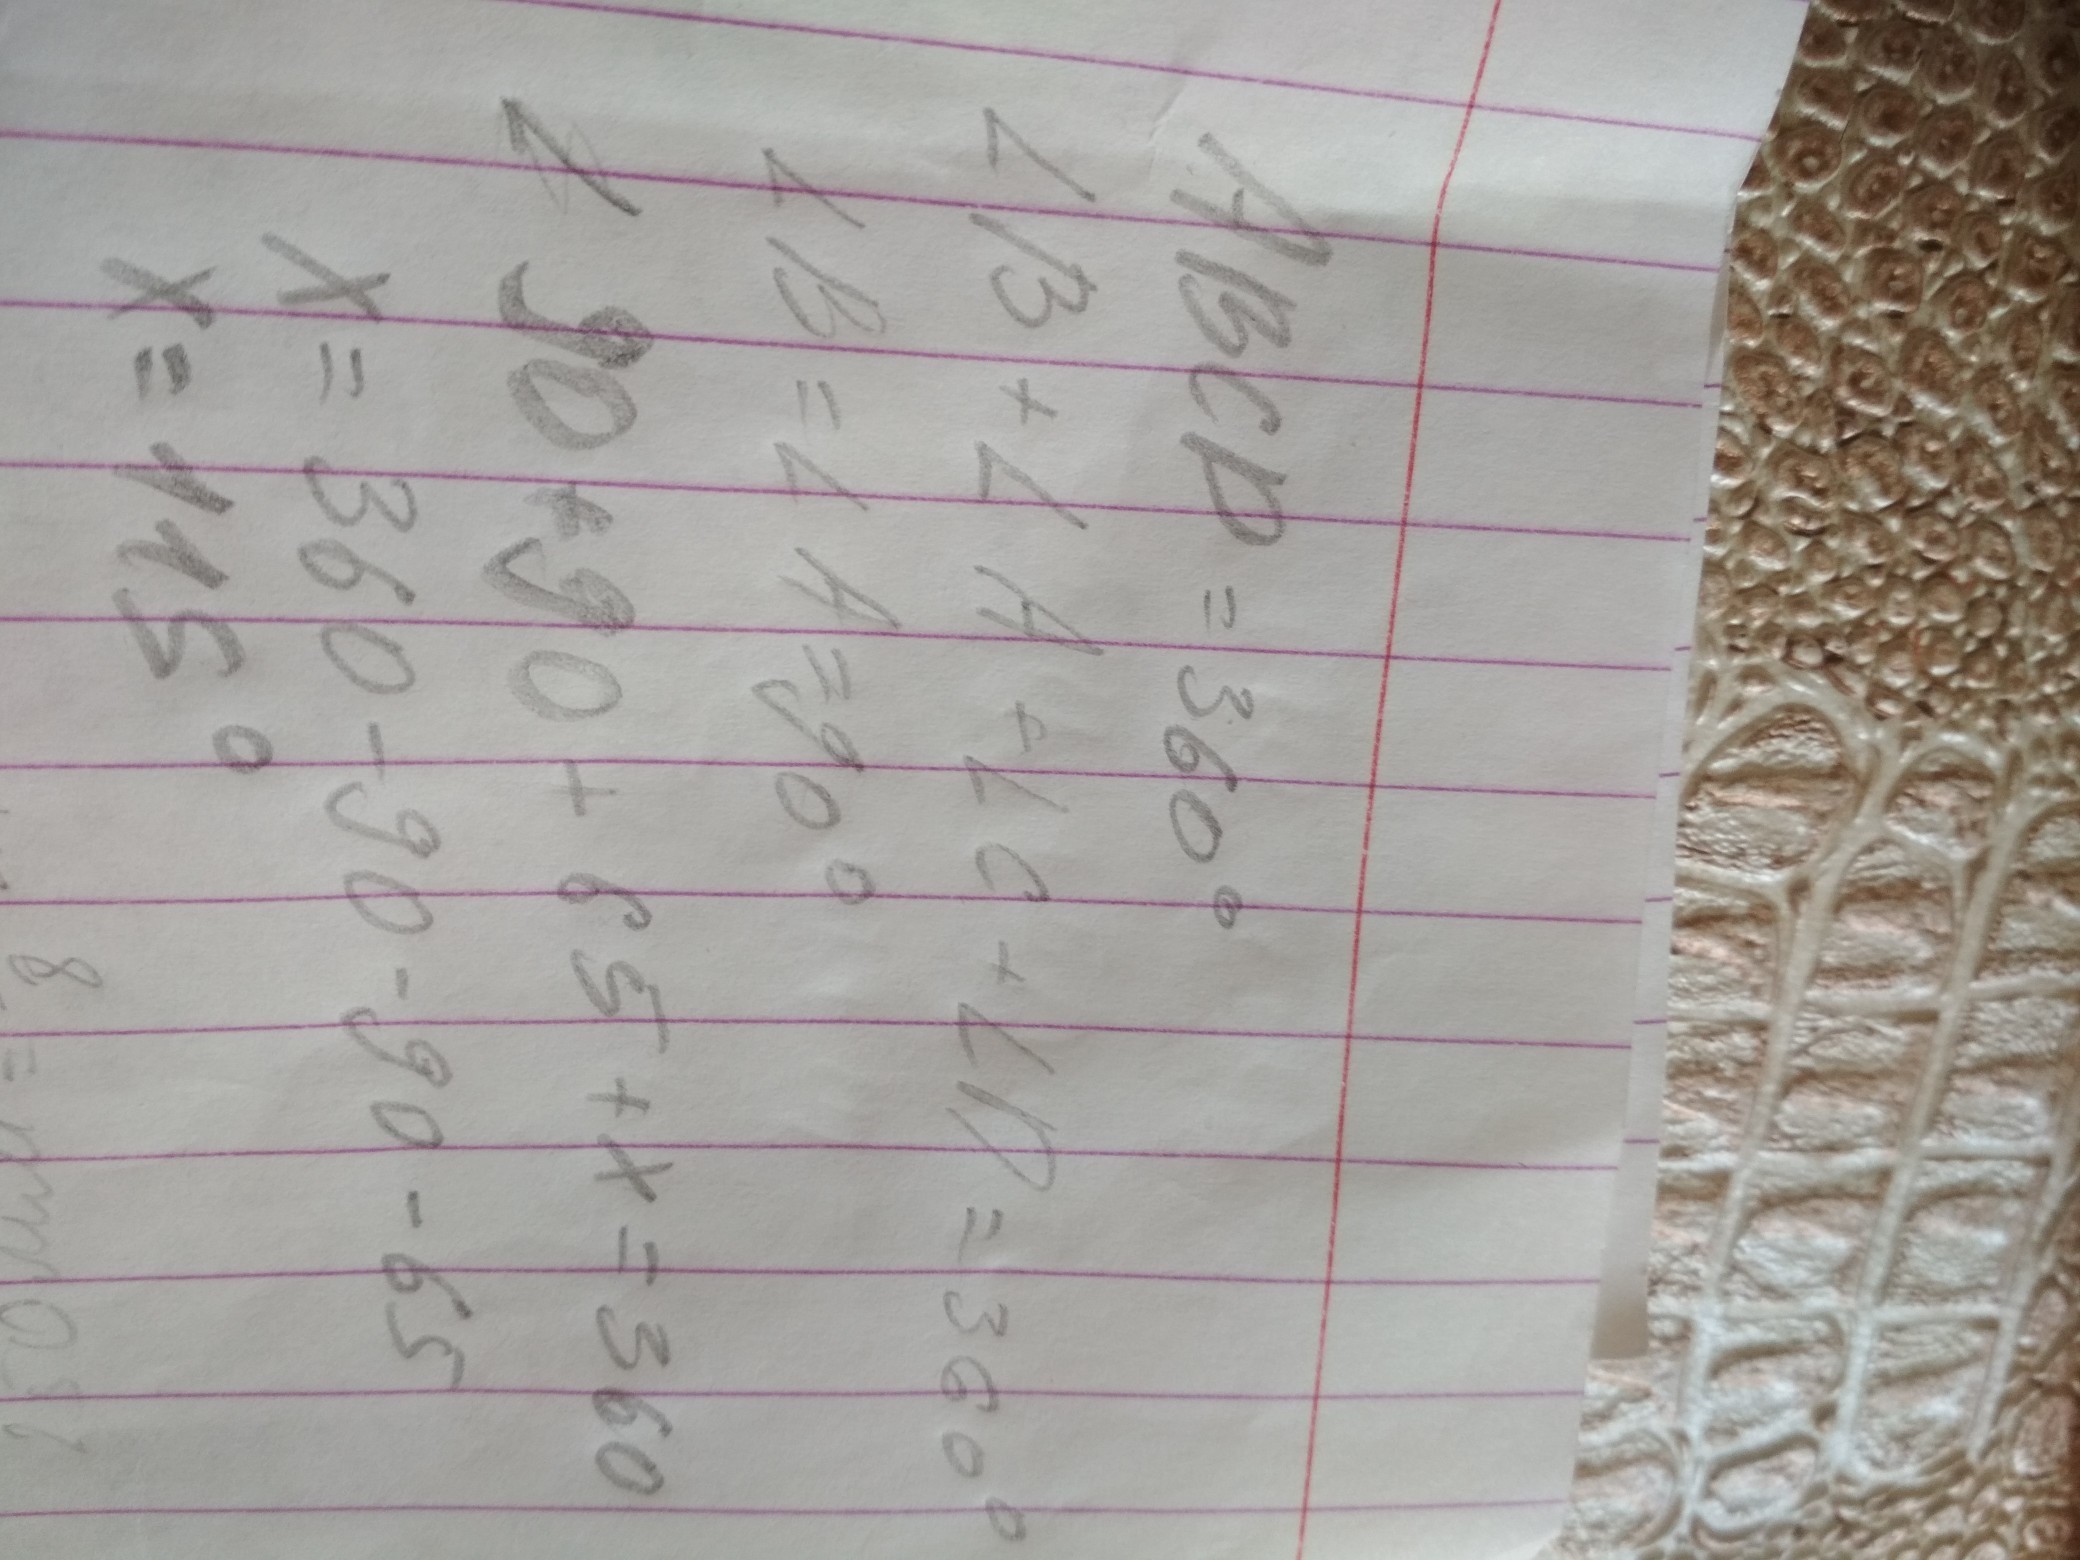 ABCD = 360°
∠B + ∠A + ∠C + ∠D = 360°
∠B = ∠A = 90°
90 + 90 + 65 + x = 360
x = 360 - 90 - 90 - 65
x = 115°